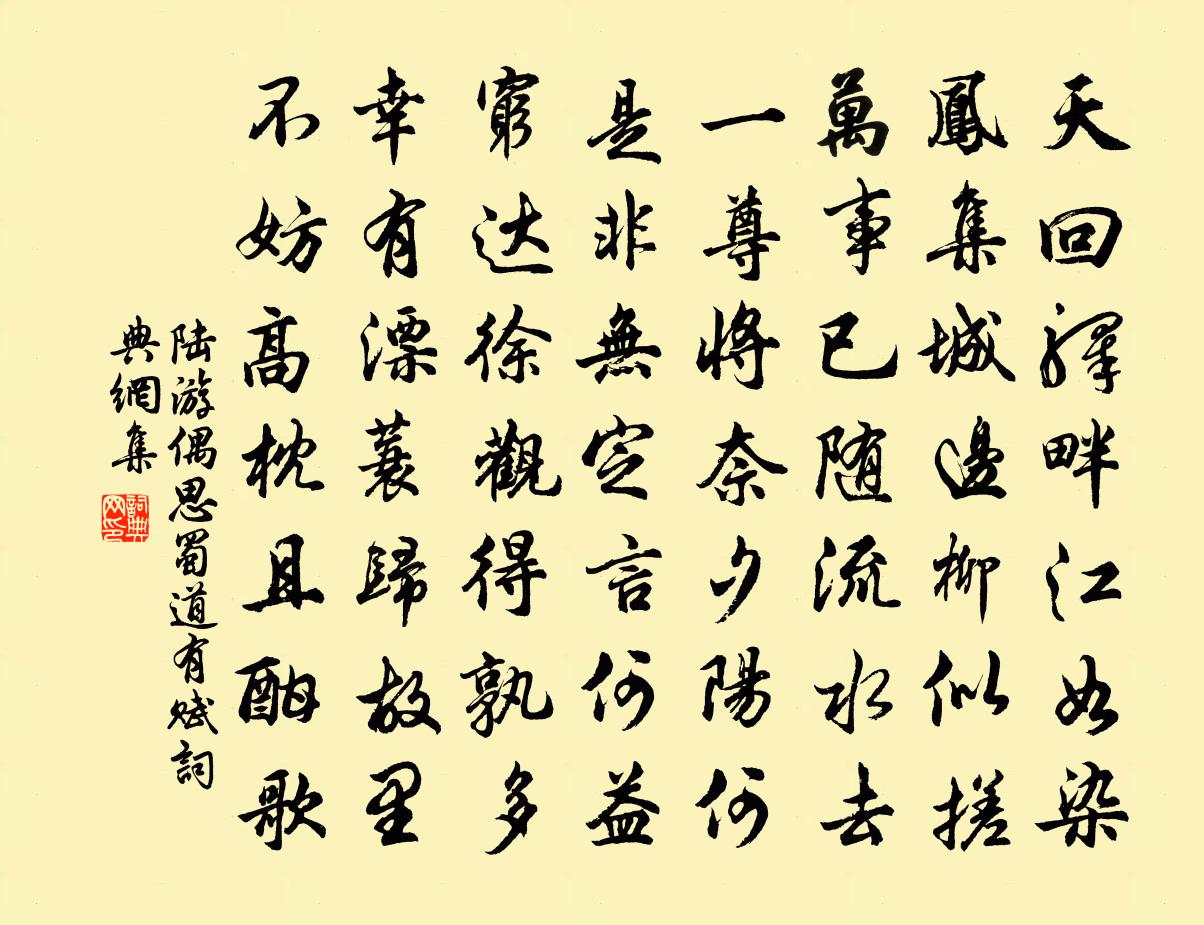 天回驛畔江如染
鳳集城邊柳似搓
萬事已随流水去
一尊將奈夕陽何
是非無定言何益
窮达徐觀得孰多
幸有漂蓑歸故里
不妨高枕且酣歌
陆游偶思蜀道有赋詞
典網集
詞典
网印